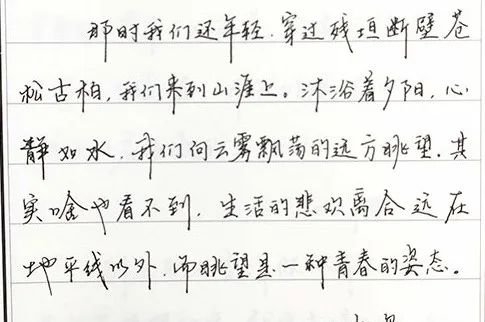 那时我们还年轻，穿过残垣断壁苍
松古柏，我们来到山涯上。沐浴着夕阳，心
静如水，我们向云雾飘荡的远方眺望。其
实啥也看不到，生活的悲欢离合远在
地平线以外，而眺望是一种青春的姿态。